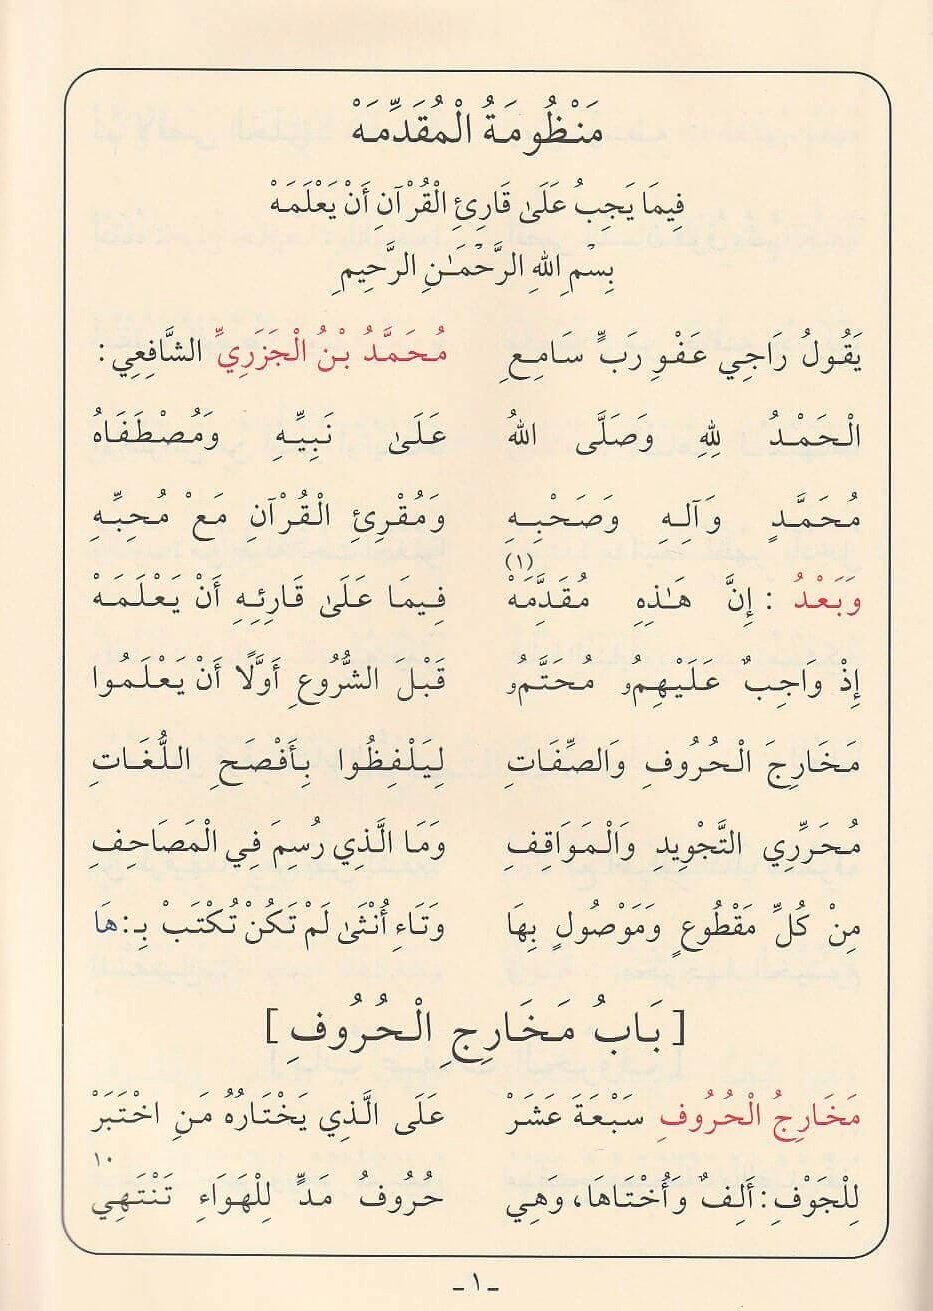 مَنْظُومَةُ الْمُقَدِّمَهْ
فِيمَا يَجِبُ عَلَىٰ قَارِئِ الْقُرْآنِ أَنْ يَعْلَمَهْ
بِسْمِ اللهِ الرَّحْمَـٰنِ الرَّحِيمِ
يَقُولُ رَاجِي عَفْوِ رَبٍّ سَامِعِ مُحَمَّدُ بْنُ الْجَزَرِيِّ الشَّافِعِي :
الْحَمْدُ لِلهِ وَصَلَّى اللهُ عَلَىٰ نَبِيِّهِ وَمُصْطَفَاهُ
مُحَمَّدٍ وَآلِهِ وَصَحْبِهِ وَمُقْرِئِ الْقُرْآنِ مَعْ مُحِبِّهِ
وَبَعْدُ : إِنَّ هَـٰذِهِ مُقَدِّمَهْ (١) فِيمَا عَلَىٰ قَارِئِهِ أَنْ يَعْلَمَهْ
إِذْ وَاجِبٌ عَلَيْهِمُۥ مُحَتَّمُۥ قَبْلَ الشُّرُوعِ أَوَّلًا أَنْ يَعْلَمُوا
مَخَارِجَ الْحُرُوفِ وَالصِّفَاتِ لِيَلْفِظُوا بِأَفْصَحِ اللُّغَاتِ
مُحَرِّرِي التَّجْوِيدِ وَالْمَوَاقِفِ وَمَا الَّذِي رُسِمَ فِي الْمَصَاحِفِ
مِنْ كُلِّ مَقْطُوعٍ وَمَوْصُولٍ بِهَا وَتَاءِ أُنْثَىٰ لَمْ تَكُنْ تُكْتَبْ بِـ:هَا
[ بَابُ مَخَارِجِ الْحُرُوفِ ]
مَخَارِجُ الْحُرُوفِ سَبْعَةَ عَشَرْ عَلَى الَّذِي يَخْتَارُهُ مَنِ اخْتَبَرْ
لِلْجَوْفِ : أَلِفٌ وَأُخْتَاهَا، وَهِي حُرُوفُ مَدٍّ لِلْهَوَاءِ تَنْتَهِي ١٠
ـ ١ ـ